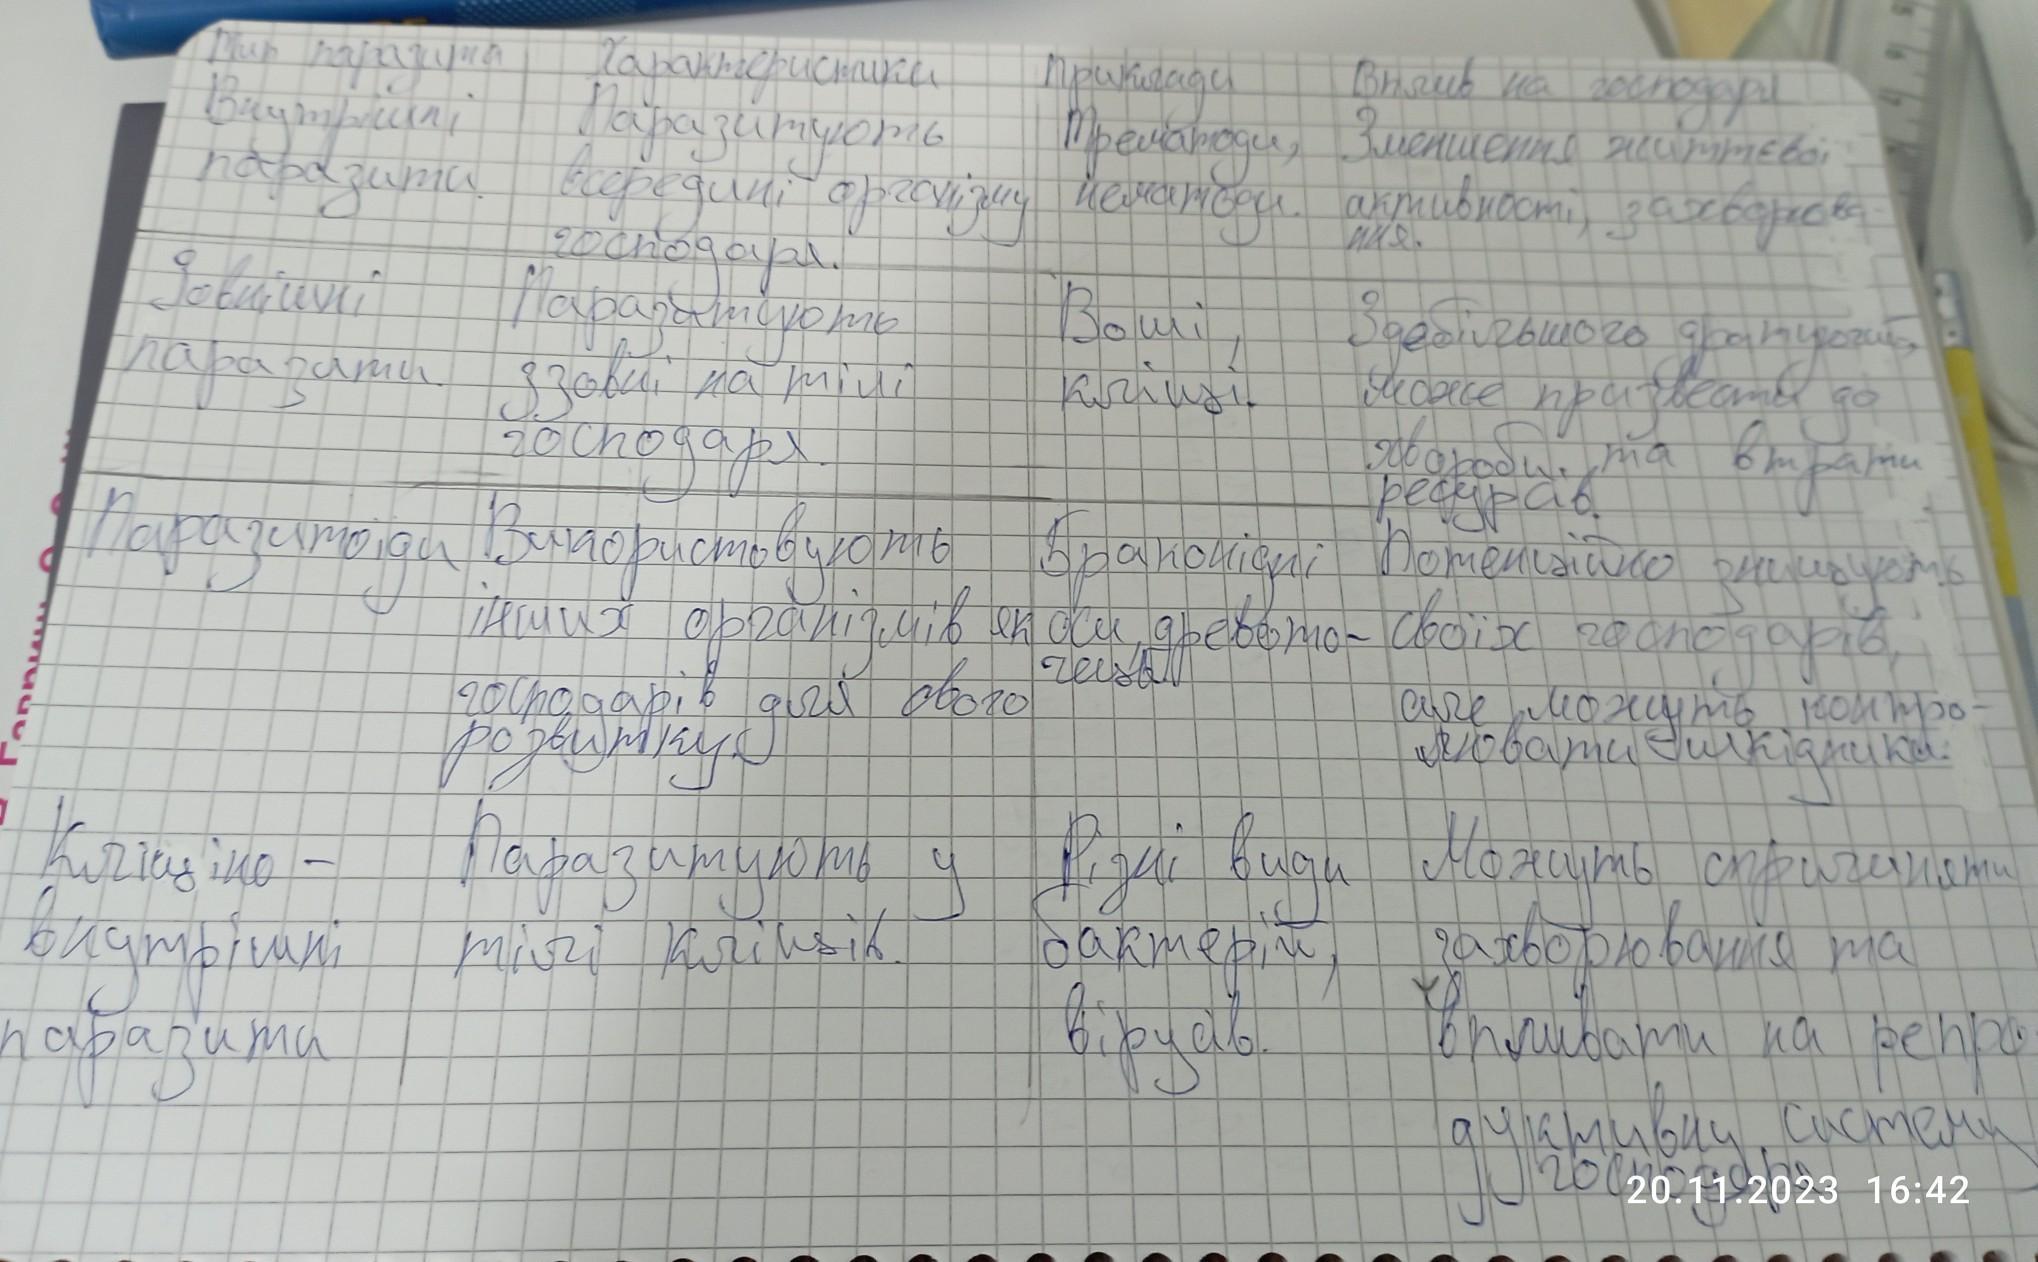 Тип паразита Характеристики Приклади Вплив на господаря
Внутрішні Паразитують Трематоди, Зменшення життєвої
паразити. всередині організму нематоди. активності, захворюва-
господаря. ння.
Зовнішні Паразитують Воші, Здебільшого дратують,
паразити ззовні на тілі кліщі. може призвести до
господаря. хвороби та втрати
ресурсів.
Паразитоїди Використовують Браконідні Потенційно знищують
інших організмів як оси, своїх господарів,
господарів для свого
але можуть контро-
розвитку. лювати шкідники.
Кліщіно- Паразитують у Різні види Можуть спричиняти
внутрішні тілі кліщів. бактерій, захворювання та
паразити вірусів. впливати на репро
дуктивну систему
господаря
20.11.2023 16:42